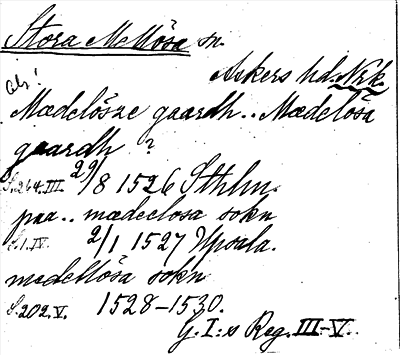 Stora Mellösa sn.
Askers hd. Nrk.
als!
Mædelösze gaardh.. Mædelösa
gaardh ?
S.264.III. 29/8 1526 Sthlm.
paa.. mædelosa sokn
S.1.IV. 2/1 1527 Upsala.
medellösa sokn
S.202.V. 1528–1530.
G. I:s Reg. III–V.